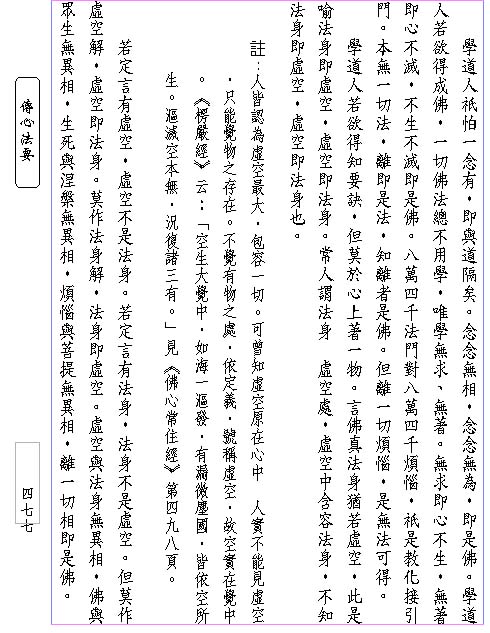 學道人祇怕一念有，即與道隔矣。念念無相，念念無為，即是佛。學道
人若欲得成佛，一切佛法總不用學，唯學無求、無著。無求即心不生，無著
即心不滅，不生不滅即是佛。八萬四千法門對八萬四千煩惱，祇是教化接引
門。本無一切法，離即是法，知離者是佛。但離一切煩惱，是無法可得。
學道人若欲得知要訣，但莫於心上著一物。言佛真法身猶若虛空，此是
喻法身即虛空，虛空即法身。常人謂法身　虛空處，虛空中含容法身，不知
法身即虛空，虛空即法身也。
註：人皆認為虛空最大，包容一切。可曾知虛空原在心中　人實不能見虛空
，只能覺物之存在。不覺有物之處，依定義，號稱虛空，故空實在覺中
。《楞嚴經》云：「空生大覺中，如海一漚發，有漏微塵國，皆依空所
生。漚滅空本無，況復諸三有。」見《佛心常住經》第四九八頁。
若定言有虛空，虛空不是法身。若定言有法身，法身不是虛空。但莫作
虛空解，虛空即法身。莫作法身解，法身即虛空。虛空與法身無異相，佛與
眾生無異相，生死與涅槃無異相，煩惱與菩提無異相，離一切相即是佛。
傳心法要
四七七